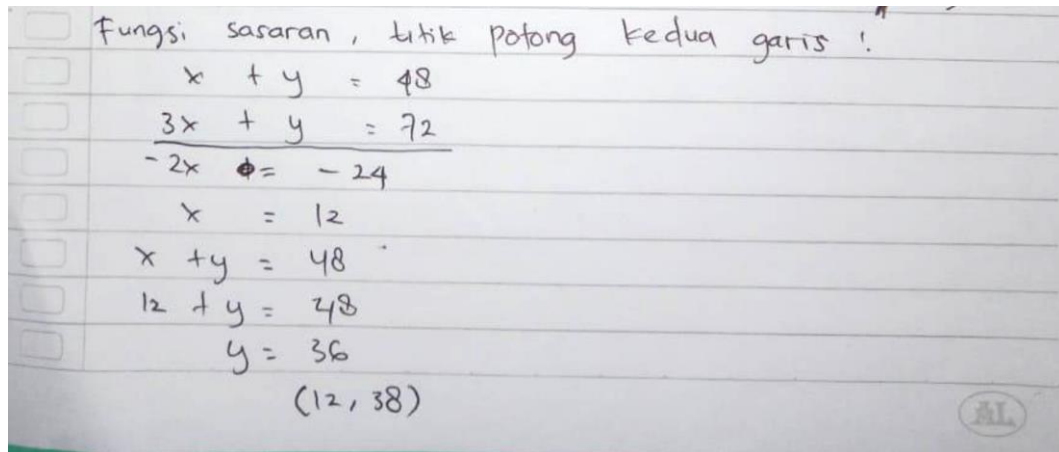 Fungsi sasaran, titik potong kedua garis!
x + y = 48
3x + y = 72
-2x = -24
x = 12
x + y = 48
12 + y = 48
y = 36
(12, 38)
AL